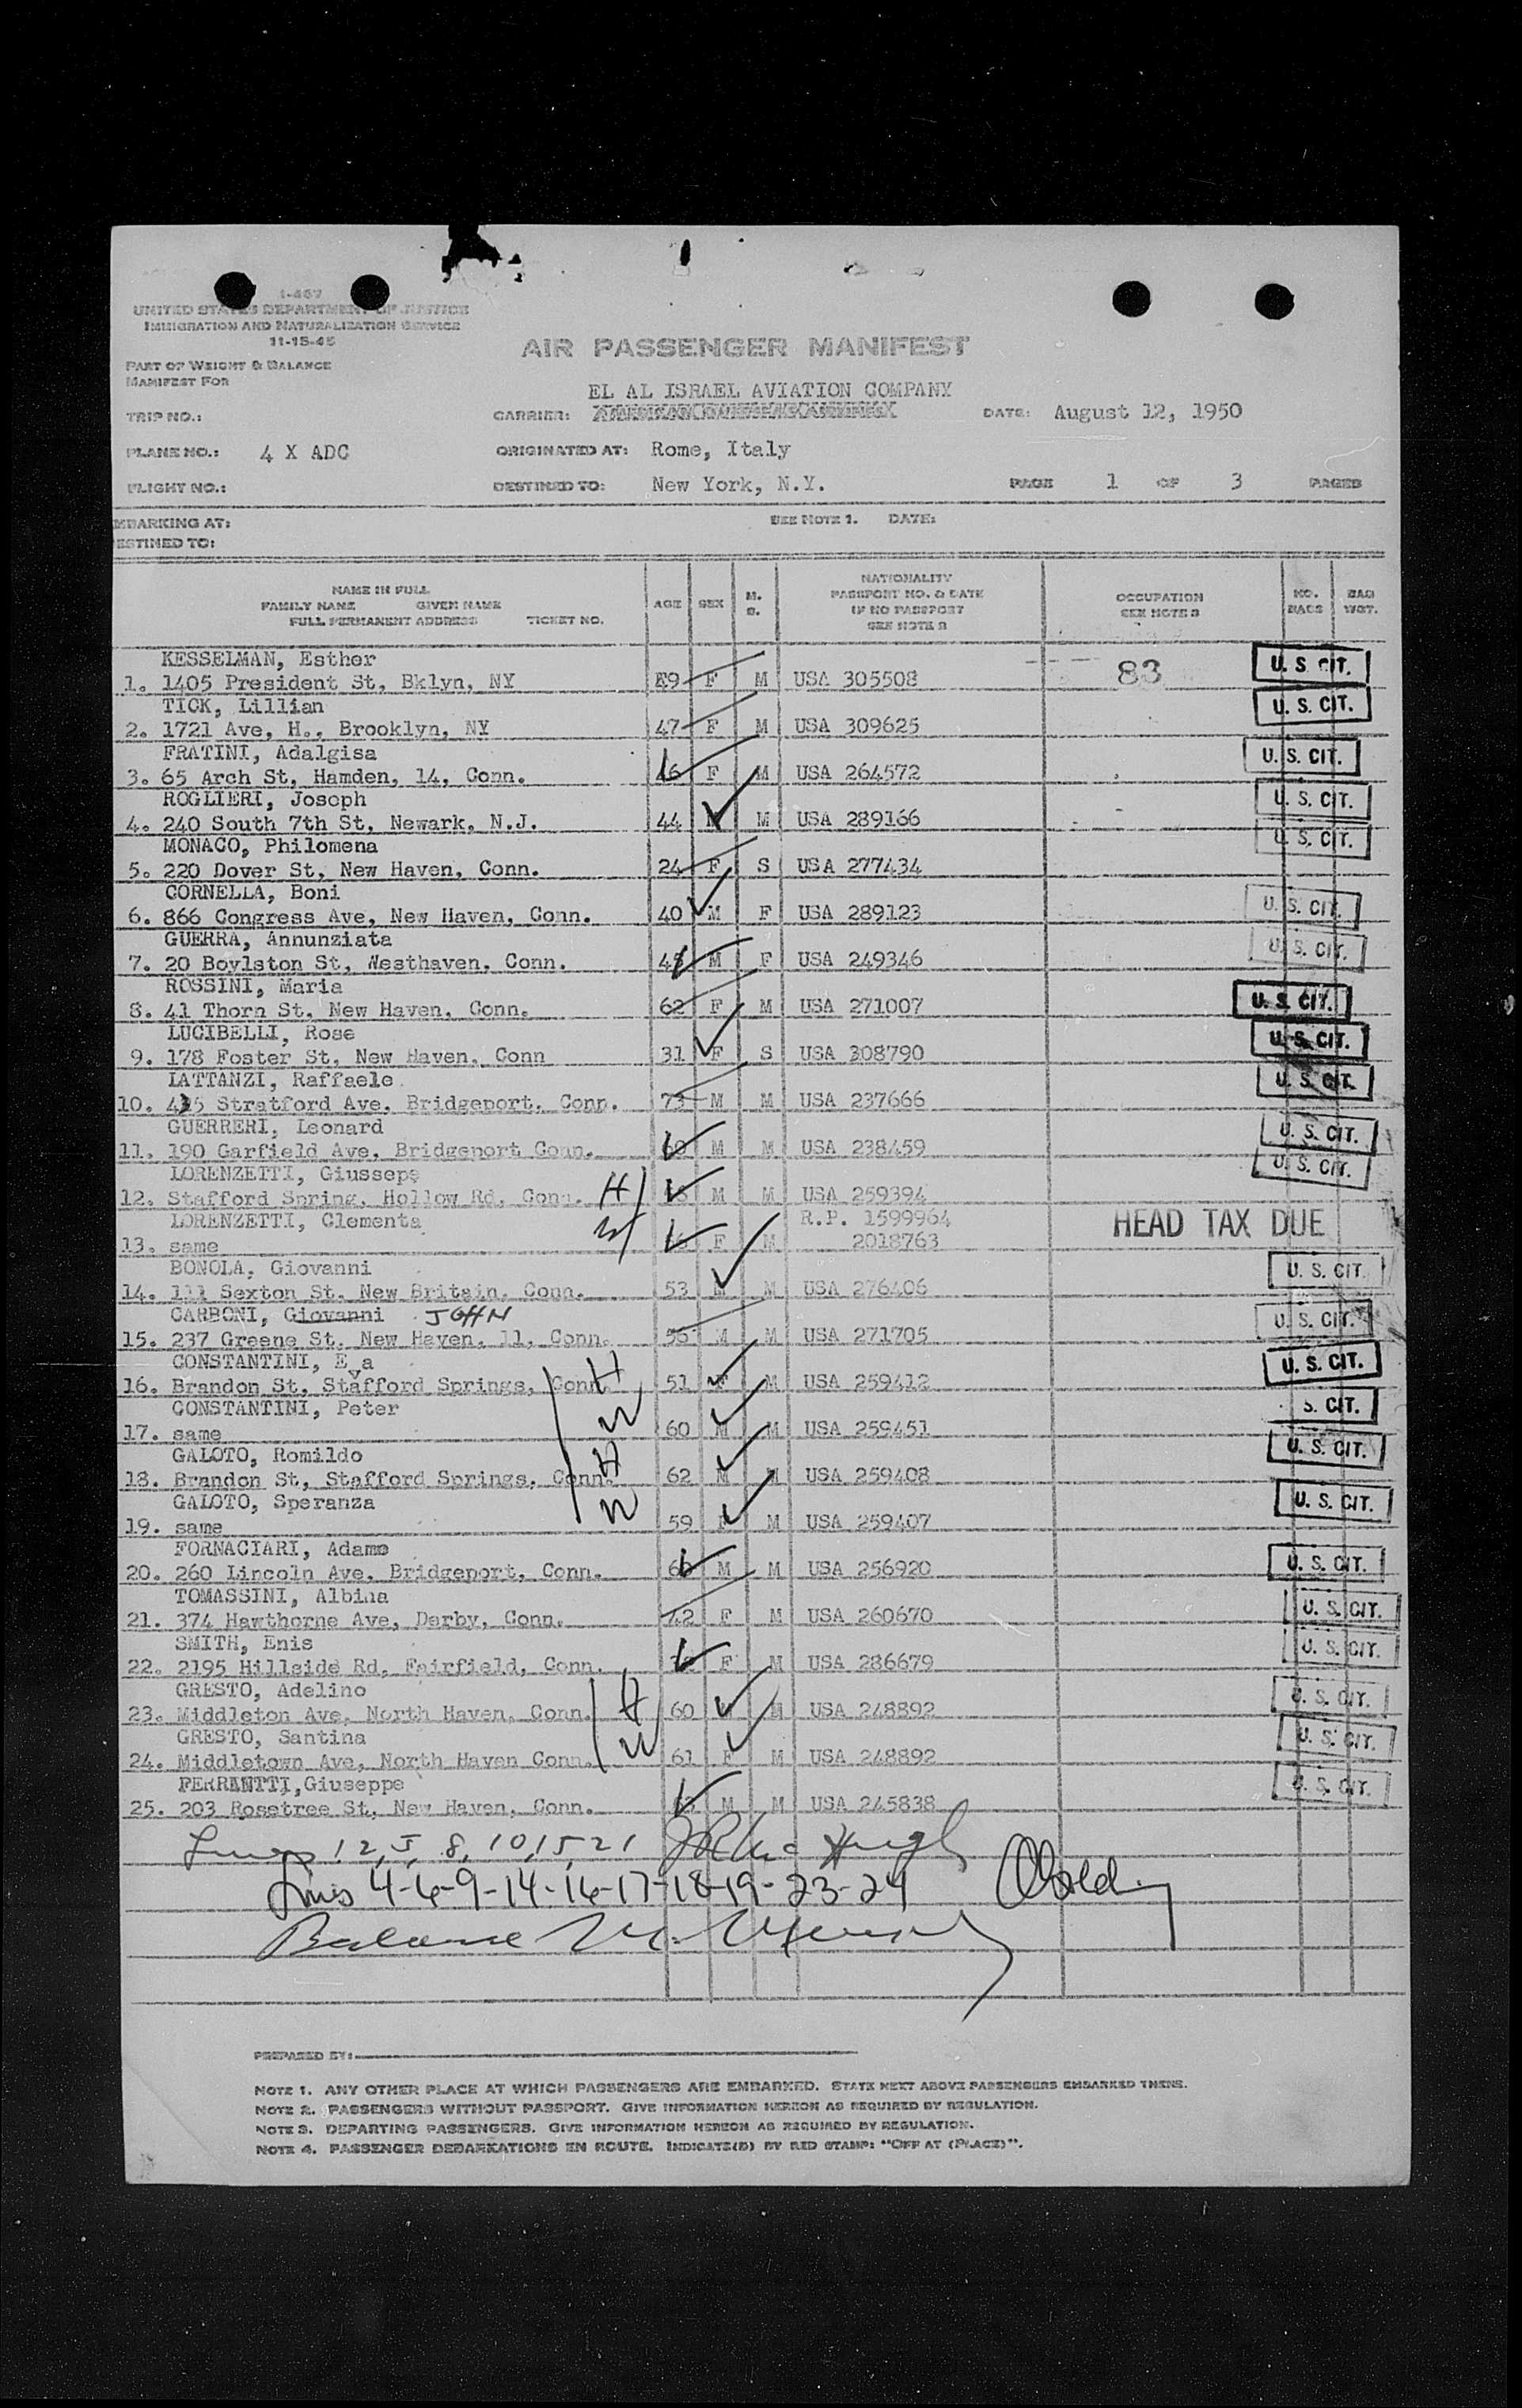 I-467
UNITED STATES DEPARTMENT OF JUSTICE
IMMIGRATION AND NATURALIZATION SERVICE
11-15-45
AIR PASSENGER MANIFEST
PART OF WEIGHT & BALANCE
MANIFEST FOR
EL AL ISRAEL AVIATION COMPANY
TRIP NO.: CARRIER: DATE: August 12, 1950
PLANE NO.: 4 X ADC ORIGINATED AT: Rome, Italy
FLIGHT NO.: DESTINED TO: New York, N.Y. PAGE 1 OF 3 PAGES
MBARKING AT: SEE NOTE 1. DATE:
ESTINED TO:
NAME IN FULL
FAMILY NAME GIVEN NAME
FULL PERMANENT ADDRESS TICKET NO.
AGE SEX M. S.
NATIONALITY
PASSPORT NO. & DATE
IF NO PASSPORT
SEE NOTE 2
OCCUPATION
SEE NOTE 3
NO. BAGS BAG WGT.
KESSELMAN, Esther
1. 1405 President St, Bklyn, NY E9 F M USA 305508 83 U. S. CIT.
TICK, Lillian
2. 1721 Ave, H., Brooklyn, NY 47 F M USA 309625 U. S. CIT.
FRATINI, Adalgisa
3. 65 Arch St, Hamden, 14, Conn. 46 F M USA 264572 U. S. CIT.
ROGLIERI, Joseph
4. 240 South 7th St, Newark, N.J. 44 M M USA 289166 U. S. CIT.
MONACO, Philomena
5. 220 Dover St, New Haven, Conn. 24 F S USA 277434 U. S. CIT.
CORNELLA, Boni
6. 866 Congress Ave, New Haven, Conn. 40 M F USA 289123 U. S. CIT.
GUERRA, Annunziata
7. 20 Boylston St, Westhaven, Conn. M F USA 249346 U. S. CIT.
ROSSINI, Maria
8. 41 Thorn St, New Haven, Conn. 62 F M USA 271007 U. S. CIT.
LUCIBELLI, Rose
9. 178 Foster St, New Haven, Conn 31 F S USA 308790 U. S. CIT.
LATTANZI, Raffaele
10. Stratford Ave, Bridgeport, Conn. 73 M M USA 237666 U. S. CIT.
GUERRERI, Leonard
11. 190 Garfield Ave, Bridgeport Conn. 60 M M USA 238459 U. S. CIT.
LORENZETTI, Giussepe
12. Stafford Spring, Hollow Rd, Conn. H M M USA 259394 U. S. CIT.
LORENZETTI, Clementa R.P. 1599964 HEAD TAX DUE
13. same W F M 2018763
BONOLA, Giovanni
14. 111 Sexton St, New Britain, Conn. 53 M M USA 276406 U. S. CIT
CARBONI, Giovanni JOHN
15. 237 Greene St, New Haven, 11, Conn. 56 M M USA 271705 U. S. CIT.
CONSTANTINI, Eva
16. Brandon St, Stafford Springs, Conn. H 51 F M USA 259412 U. S. CIT.
CONSTANTINI, Peter
17. same W 60 M M USA 259451 S. CIT.
GALOTO, Romildo
18. Brandon St, Stafford Springs, Conn. H 62 M M USA 259408 U. S. CIT.
GALOTO, Speranza
19. same W 59 F M USA 259407 U. S. CIT.
FORNACIARI, Adamo
20. 260 Lincoln Ave, Bridgeport, Conn. M M USA 256920 U. S. CIT.
TOMASSINI, Albina
21. 374 Hawthorne Ave, Derby, Conn. 42 F M USA 260670 U. S. CIT.
SMITH, Enis
22. 2195 Hillside Rd, Fairfield, Conn. F M USA 286679 U. S. CIT.
GRESTO, Adelino
23. Middleton Ave, North Haven, Conn. H 60 M M USA 248892 U. S. CIT.
GRESTO, Santina
24. Middletown Ave, North Haven Conn. W 61 F M USA 248892 U. S. CIT.
FERRANTTI,Giuseppe
25. 203 Rosetree St, New Haven, Conn. M M USA 245838 U. S. CIT.
Lines 1 2, 5, 8, 10, 15, 21
Lines 4-6-9-14-16-17-18-19-23-24
Balance
PREPARED BY:
NOTE 1. ANY OTHER PLACE AT WHICH PASSENGERS ARE EMBARKED. STATE NEXT ABOVE PASSENGERS EMBARKED THERE.
NOTE 2. PASSENGERS WITHOUT PASSPORT. GIVE INFORMATION HEREON AS REQUIRED BY REGULATION.
NOTE 3. DEPARTING PASSENGERS. GIVE INFORMATION HEREON AS REQUIRED BY REGULATION.
NOTE 4. PASSENGER DEBARKATIONS EN ROUTE. INDICATE(D) BY RED STAMP: "OFF AT (PLACE)".